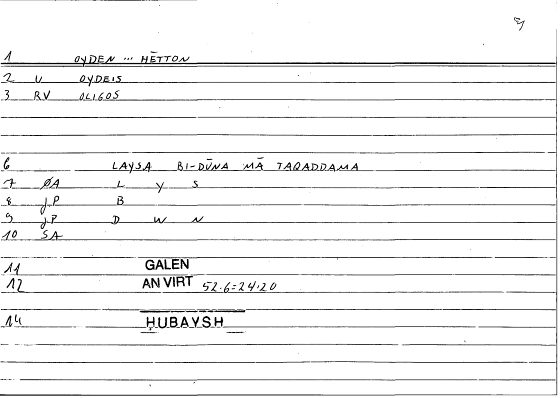 1 OYDEN ... HĒTTON
2 U OYDEIS
3 RV OLIGOS
6 LAYSA BI-DŪNA MĀ TAQADDAMA
7 ØA L Y S
8 JP B
9 JP D W N
10 SA
11 GALEN
12 AN VIRT 52.6=24.20
14 ḤUBAYSH